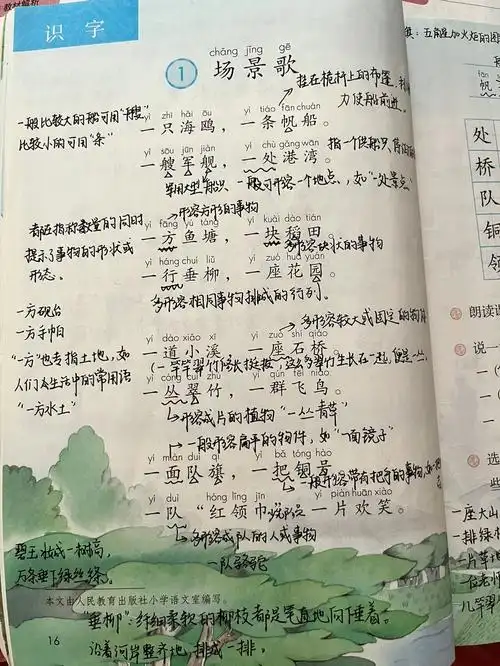 识字
chǎng jǐng gē
① 场景歌
挂在桅杆上的布篷，利用风
力使船前进。
一般比较大的船可用“艘”
比较小的可用“条”
yì zhī hǎi ōu yì tiáo fān chuán
一只海鸥，一条帆船。
yì sōu jūn jiàn yí chù gǎng wān
一艘军舰，一处港湾。
常用大型船只
一般可形容一个地点，如“一处景点”
形容方形的事物
都在指称数量的同时
提示了事物的形状或
形态。
yì fāng yú táng yí kuài dào tián
一方鱼塘，一块稻田。
多形容块状的事物
yì háng chuí liǔ yí zuò huā yuán
一行垂柳，一座花园。
多形容相同事物排成的行列。
一方砚台
一方手帕
“一方”也专指土地，如
人们在生活中的常用语
“一方水土”
多形容较大或固定的物体
yí dào xiǎo xī yí zuò shí qiáo
一道小溪，一座石桥。
yì cóng cuì zhú yì qún fēi niǎo
一丛翠竹，一群飞鸟。
形容成片的植物“一丛青草”
一般形容扁平的物件，如“一面镜子”
yí miàn duì qí yì bǎ tóng hào
一面队旗，一把铜号，
一般形容带有把手的事物，如
yí duì hóng lǐng jīn yí piàn huān xiào
一队“红领巾”，一片欢笑。
多形容成队的人或事物
碧玉妆成一树高，
万条垂下绿丝绦。
本文由人民教育出版社小学语文室编写。
“垂柳”：纤细柔软的柳枝都是笔直地向下垂着。
沿着河岸整齐地排成一排，
16
五角星加火炬的图
处
桥
队
铜
领
朗读课
说一
选
些
一座大山
一排绿树